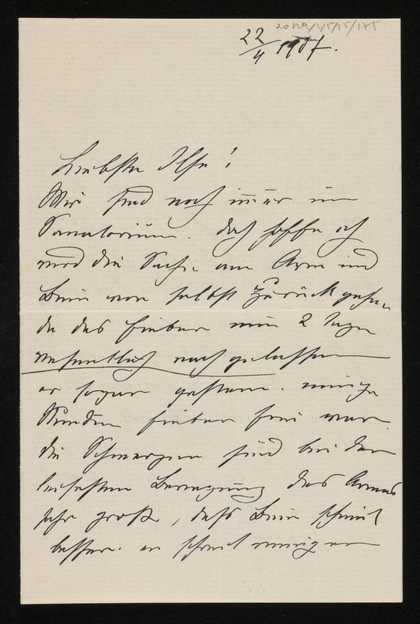 22/4 1907.
Liebste Ilse!
Wir sind noch immer im
Sanatorium. Doch hoffe ich
wird die Sache am Arm und
Bein von selbst zurückgehen
da das Fieber nun 2 Tage
wesentlich nachgelassen
er sogar gestern einige
Stunden fieberfrei war.
die Schmerzen sind bei der
leisesten Bewegung des Armes
sehr groß, das Bein scheint
besser. er scheint